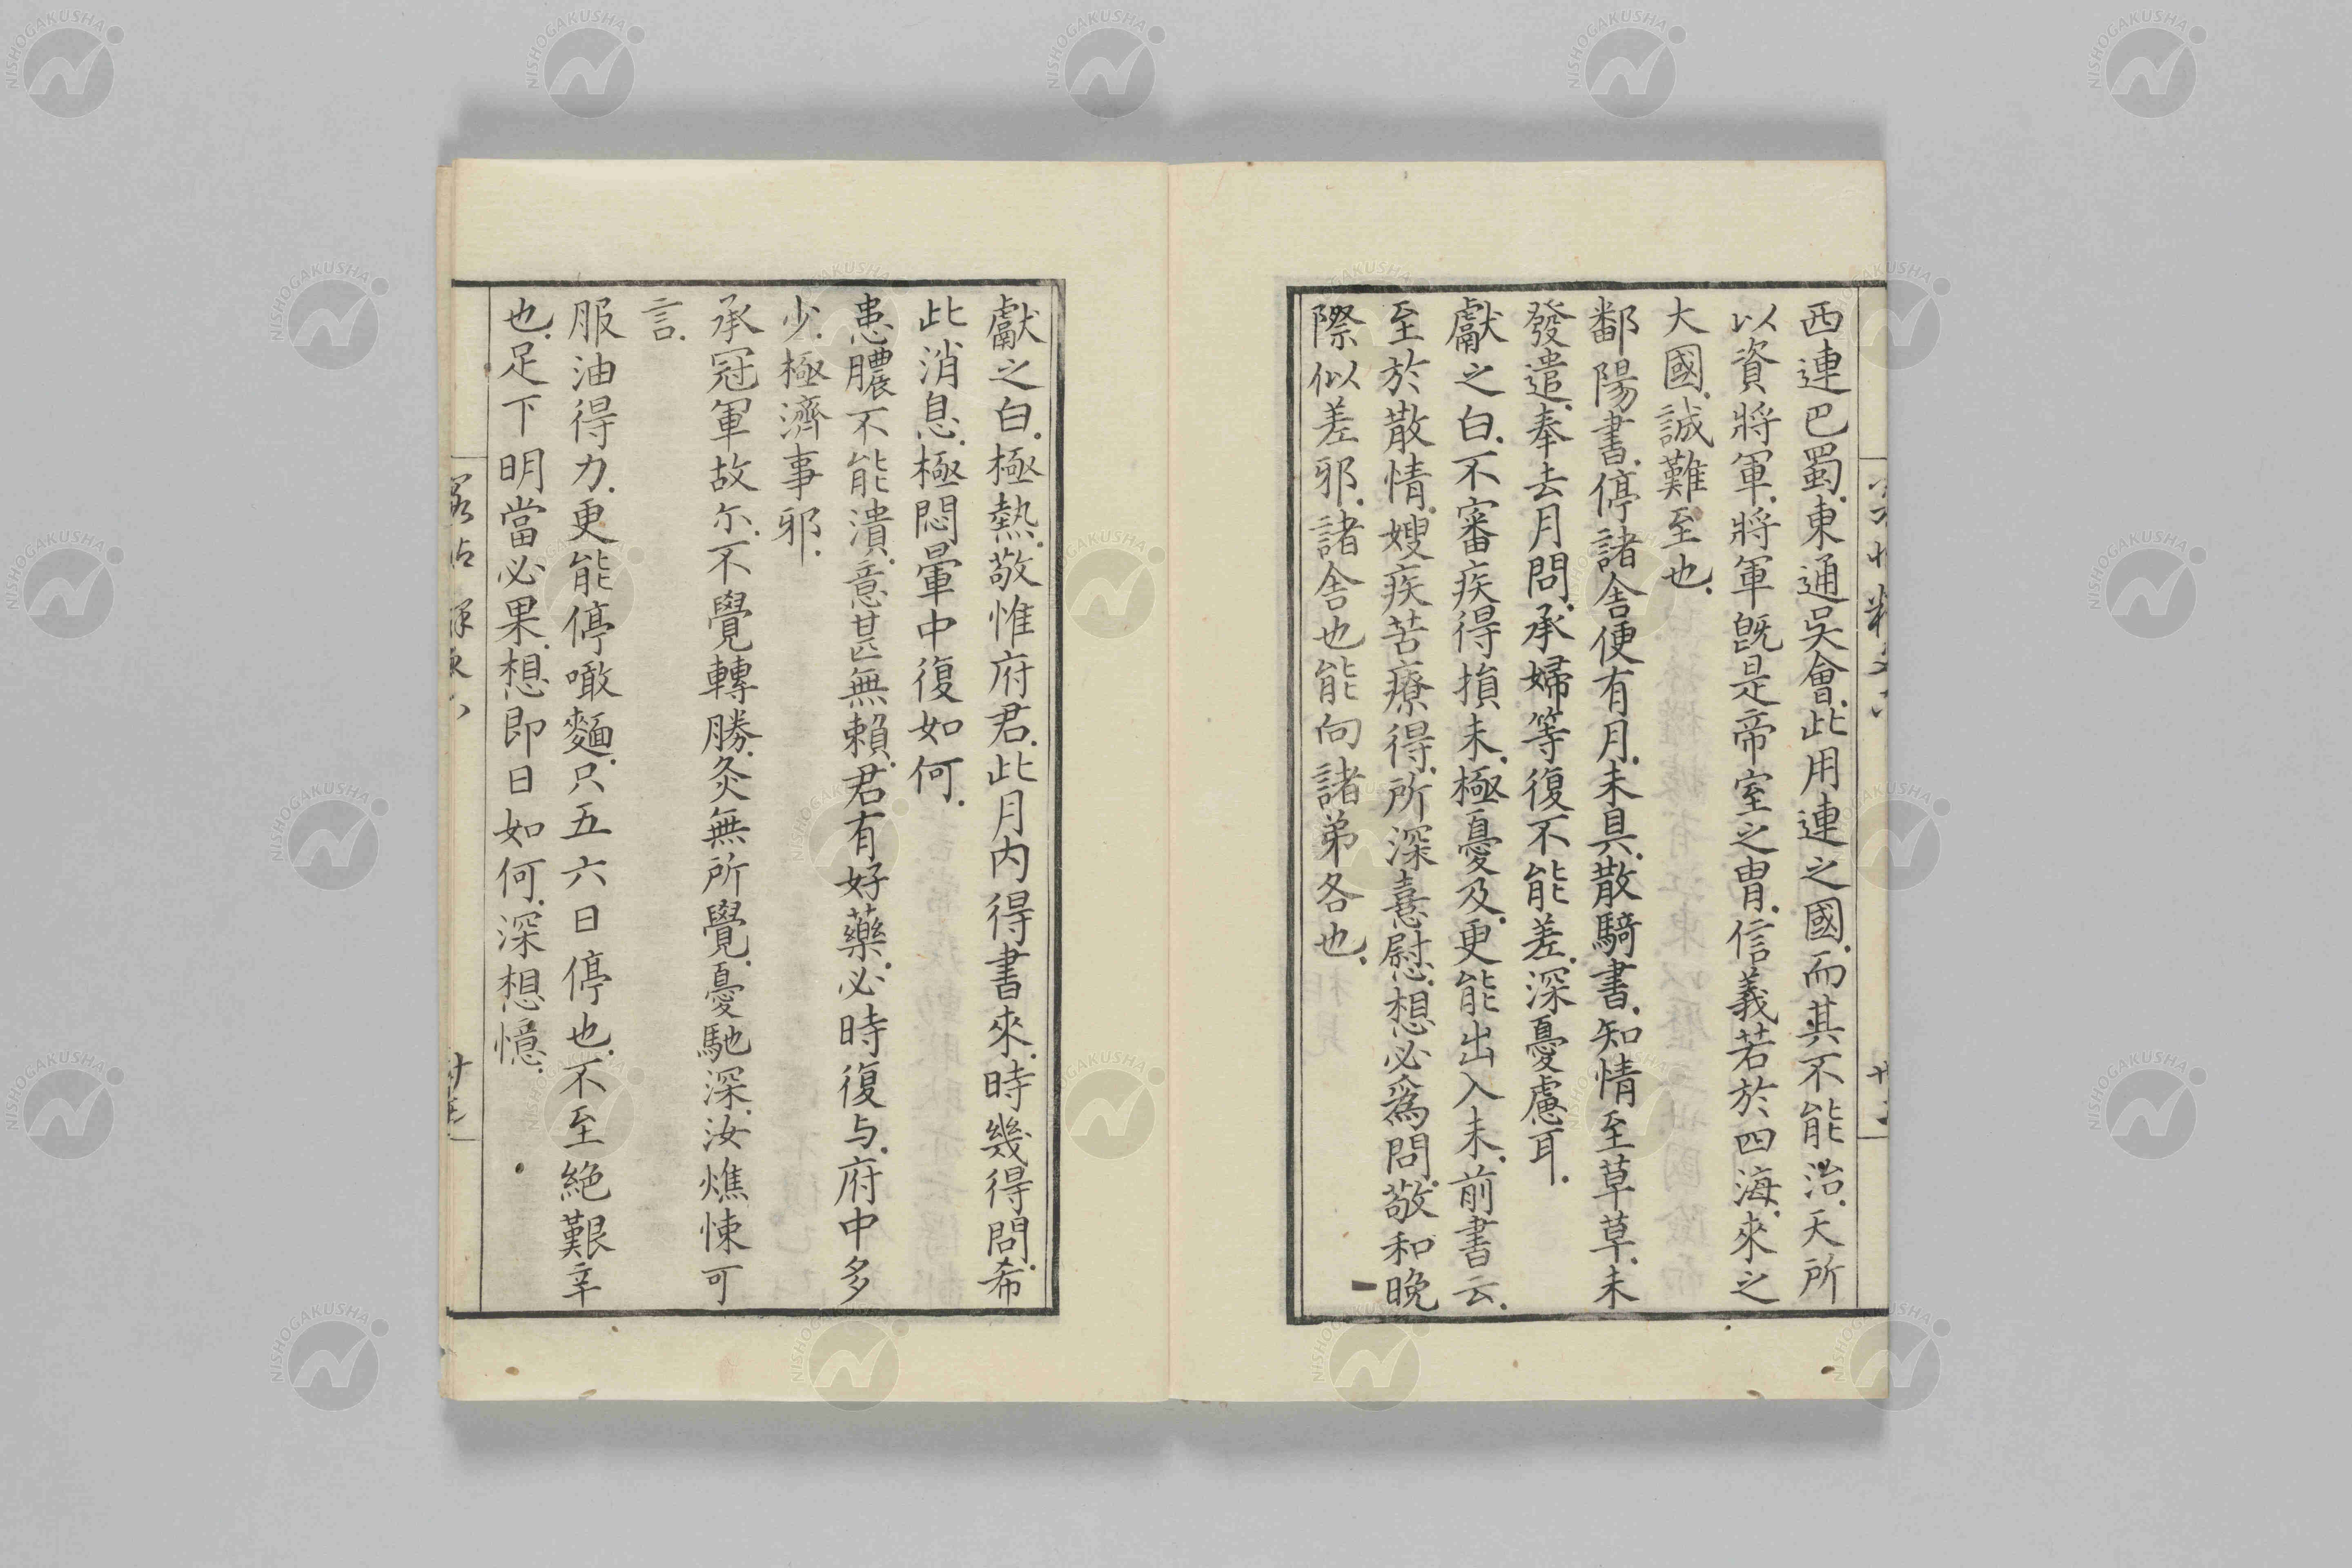 西連巴蜀.東通吳會.此用連之國.而其不能治.天所
以資將軍.將軍既是帝室之胄.信義若於四海.來之
大國.誠難至也.
鄱陽書.停諸舍便有月.未具.散騎書.知情至草草.未
發遣.奉去月問.承婦等復不能差.深憂慮耳.
獻之白.不審疾得損未.極憂及.更能出入未.前書云.
至於散情.嫂疾苦療得.所深憙慰.想必爲問.敬和晚
際似差邪.諸舍也能向諸弟各也.
獻之白.極熱.敬惟府君.此月內得書來.時幾得問.希
此消息.極悶暈中復如何.
患膿不能潰.意甚無賴.君有好藥.必時復与.府中多
少.極濟事邪.
承冠軍故尓.不覺轉勝.灸無所覺.憂馳深.汝燋悚可
言.
服油得力.更能停噉麵.只五六日停也.不至絕艱辛
也.足下明當必果.想即日如何.深想憶.
NISHOGAKUSHA